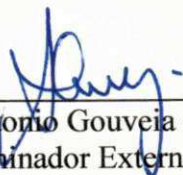 onio Gouveia
inador Extern